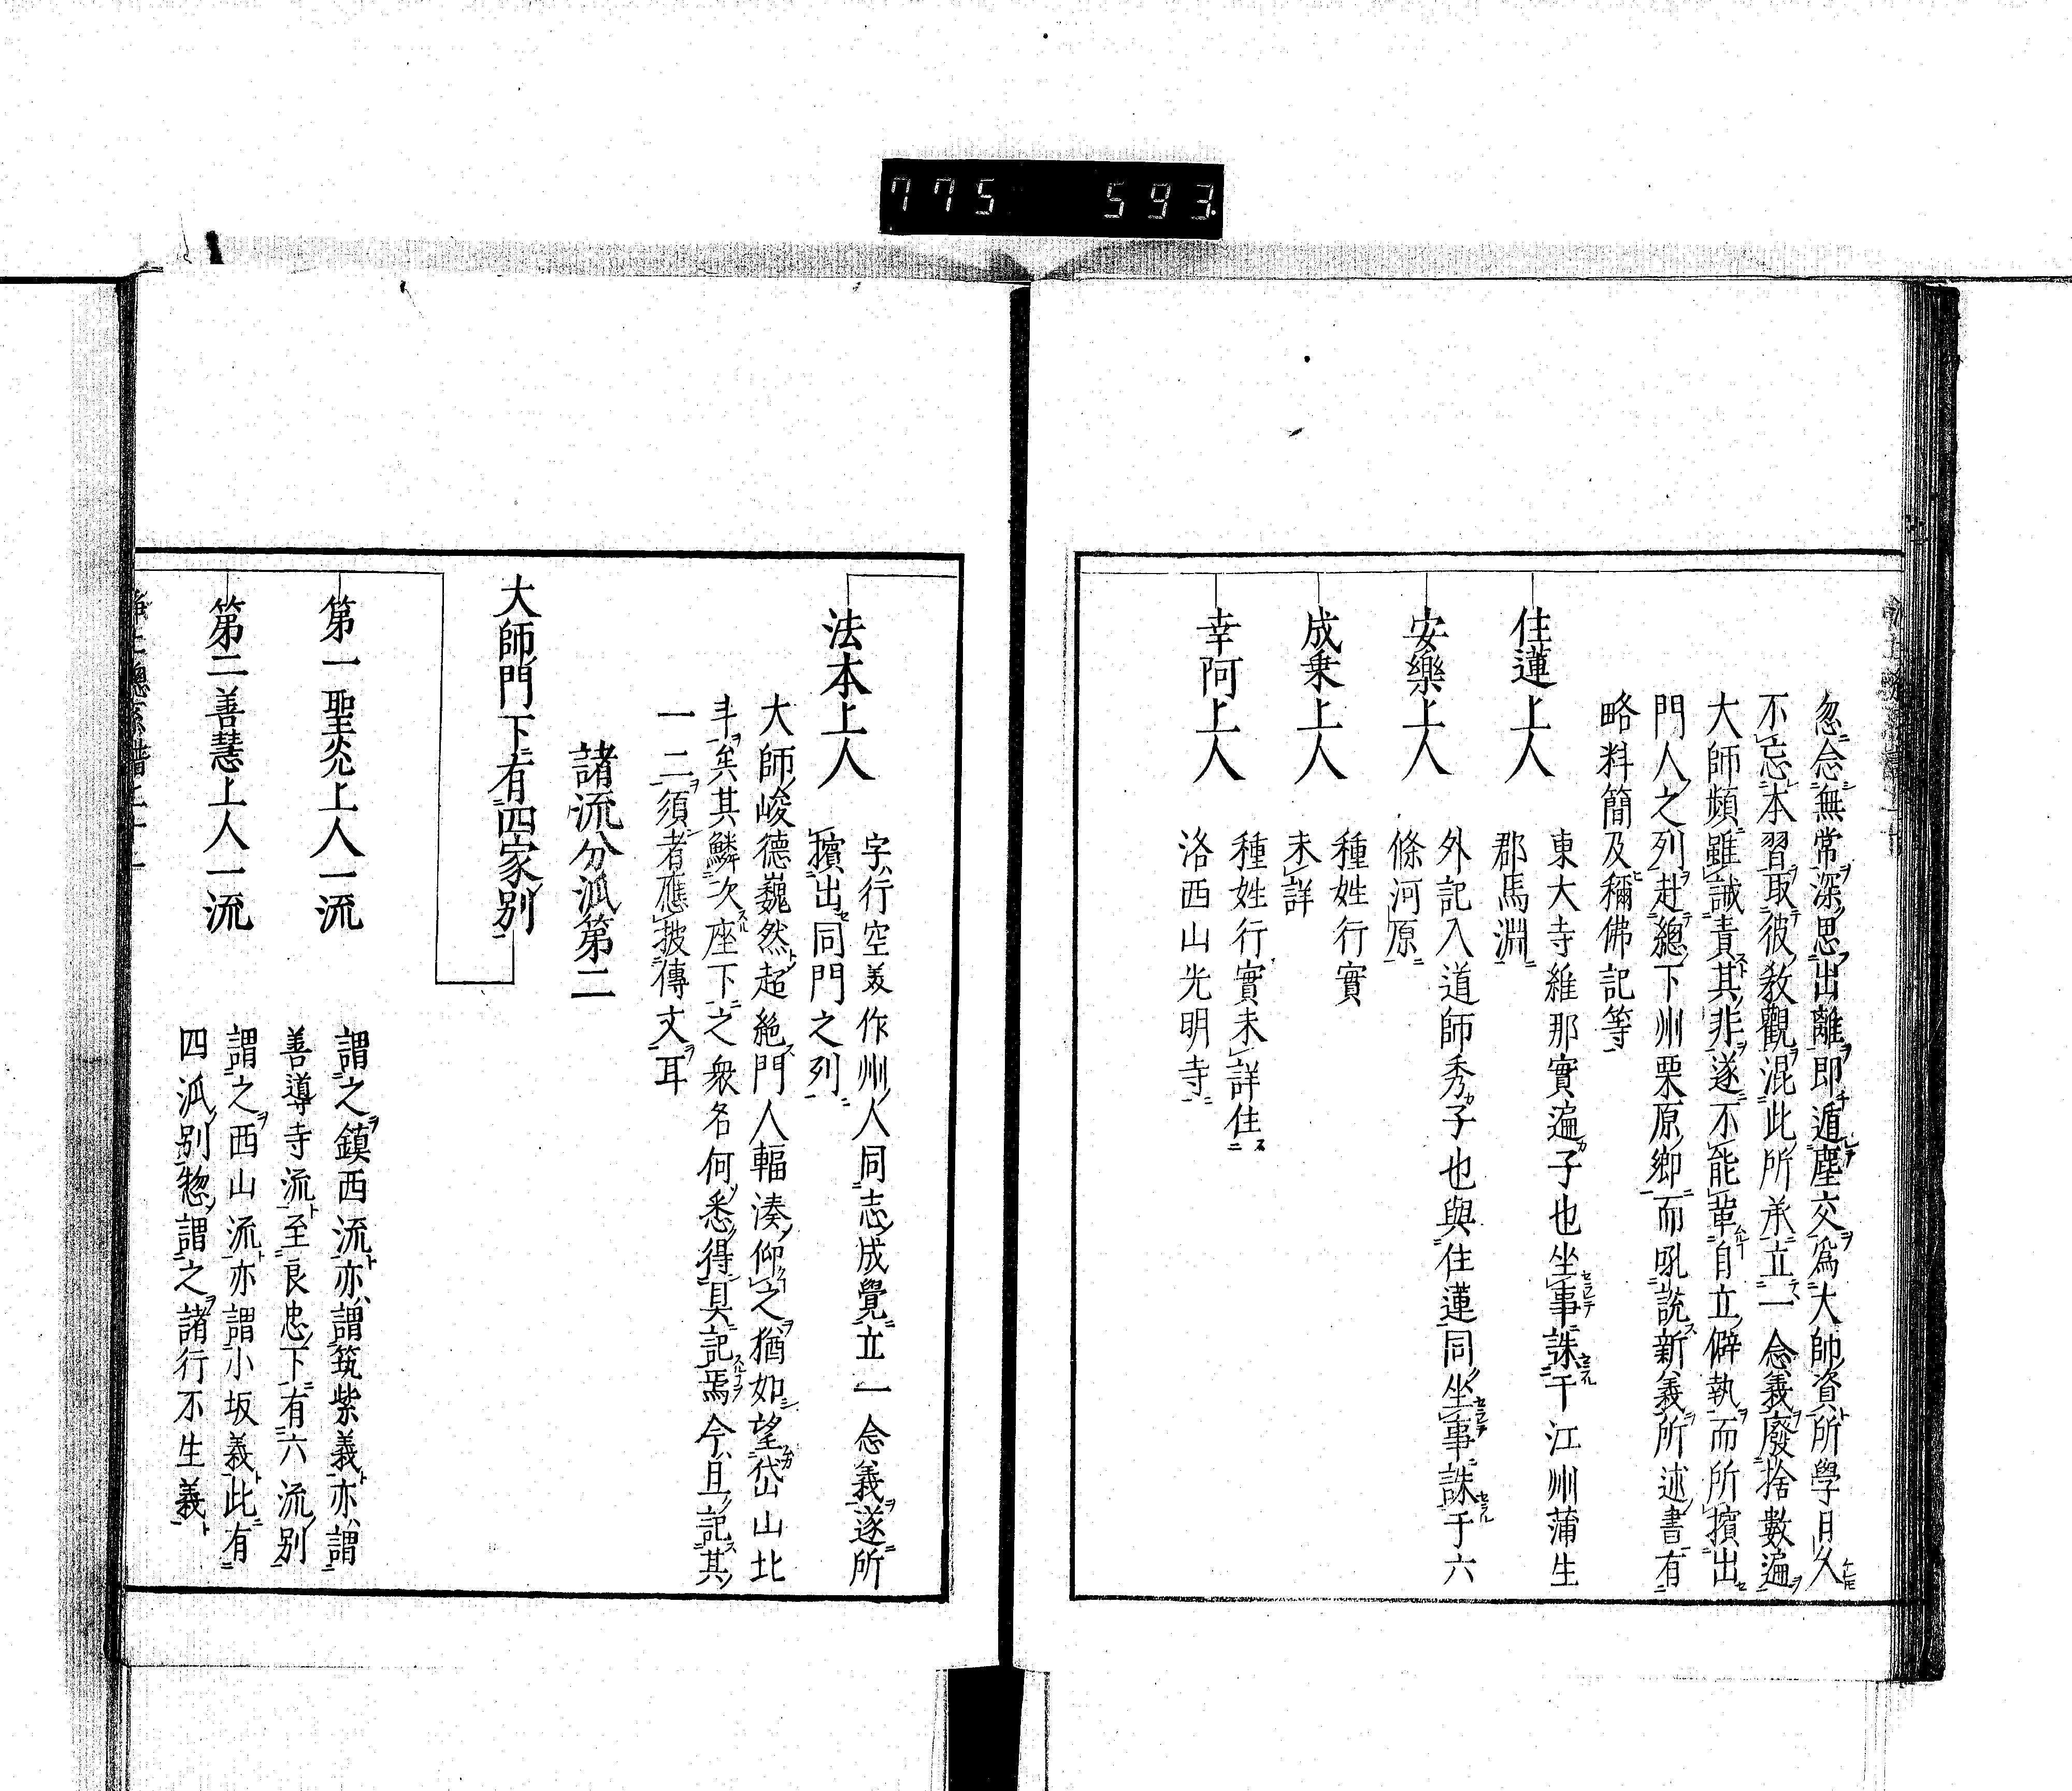 775 593
忽念無常深思出離即遁塵交爲大師資所學日久
不忘本習取彼教觀混此所承立一念義廢捨數遍
大師頻雖誡責其非遂不能革自立僻執而所擯出
門人之列赴總下州栗原鄉而吼説新義所述書有
略料簡及稱佛記等
住蓮上人
東大寺維那實遍子也坐事誅于江州蒲生
郡馬淵
安樂上人
外記入道師秀子也與住蓮同坐事誅于六
條河原
成乗上人
種姓行實
未詳
幸阿上人
種姓行實未詳住
洛西山光明寺
法本上人
字行空美作州人同志成覺立一念義遂所
擯出同門之列
大師峻德巍然超絶門人輻湊仰之猶如望岱山北
斗矣其鱗次座下之衆名何悉得具記焉今且記其
一二須者應披傳文耳
諸流分派第二
大師門下有四家別
第一聖光上人一流
謂之鎮西流亦謂筑紫義亦謂
善導寺流至良忠下有六流別
第二善慧上人一流
謂之西山流亦謂小坂義此有
四派別惣謂之諸行不生義